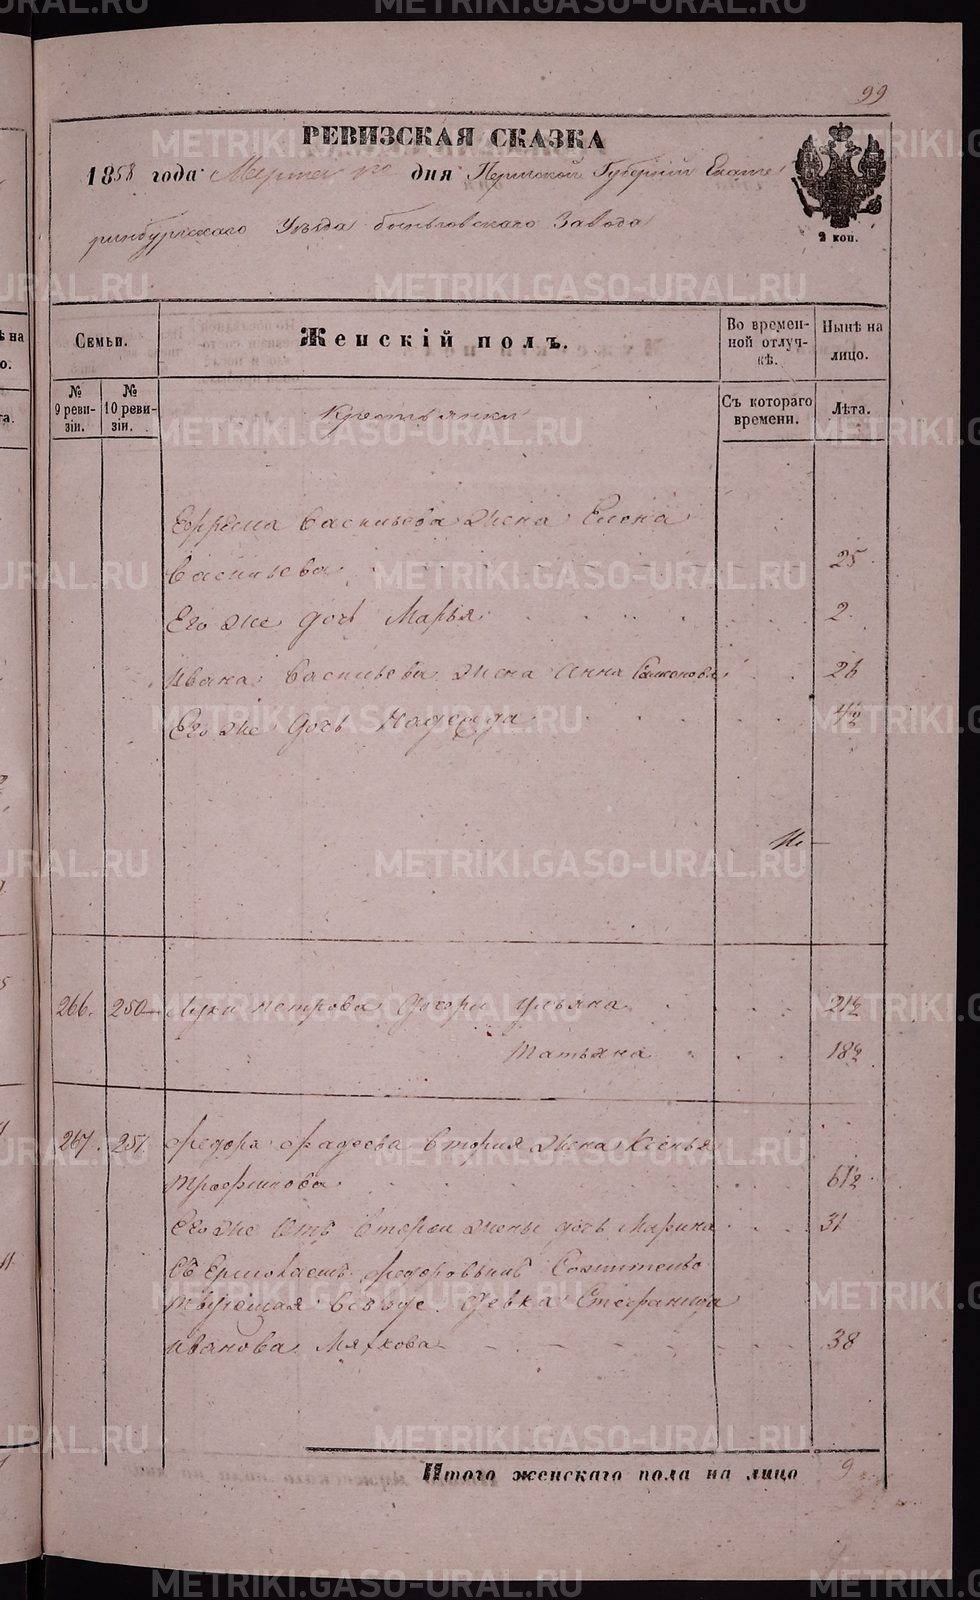 99
РЕВИЗСКАЯ СКАЗКА
1858 года Марта дня Пермской Губернии Екате
ринбургскаго Уезда Быньговскаго Завода
2 коп.
Семьи.
Женскій полъ.
Во времен-
ной отлуч-
кѣ.
Нынѣ на
лицо.
№
9 реви-
зіи.
№
10 реви-
зіи.
Крестьянки
Съ котораго
времени.
Лѣта.
Ефрема Васильева жена Елена
Васильева 25
Его же дочь Марья 2
Ивана Васильева жена Анна Симонова 26
Его же дочь Надежда
266. 250 Луки Петрова дочери Ульяна 21½
Татьяна 18½
267. 251 Федора Фадеева вторая жена Ксенья
Трофимова 61½
Его же отъ второй жены дочь Марина 31
Съ Ермолаемъ Федоровымъ
девка Стефанида
Иванова Мяхкова 38
Итого женскаго пола на лицо 9
METRIKI.GASO-URAL.RU